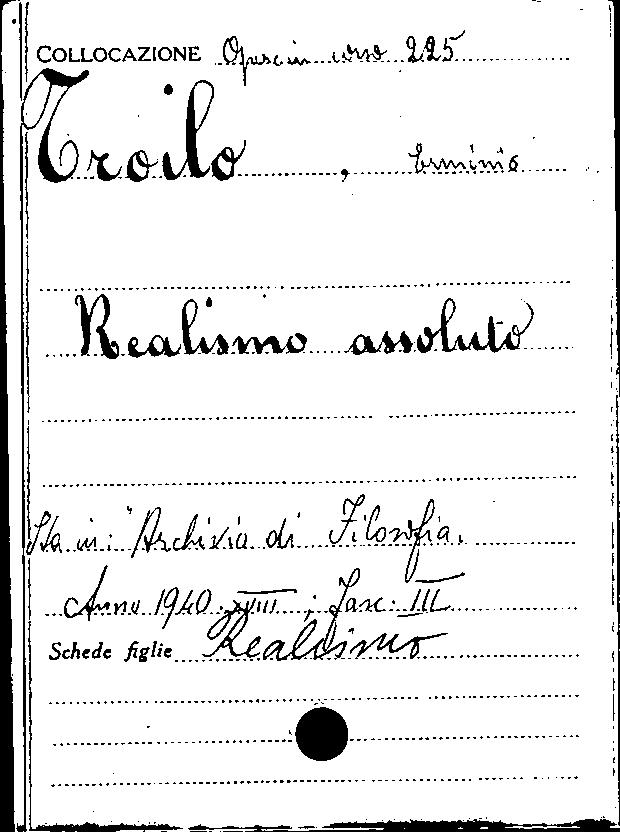 COLLOCAZIONE Opusc in corso 225
Troilo, Erminio
Realismo assoluto
Sta in: "Archivia di Filosofia.
Anno 1940. XVIII; Fasc: III
Schede figlie Realismo